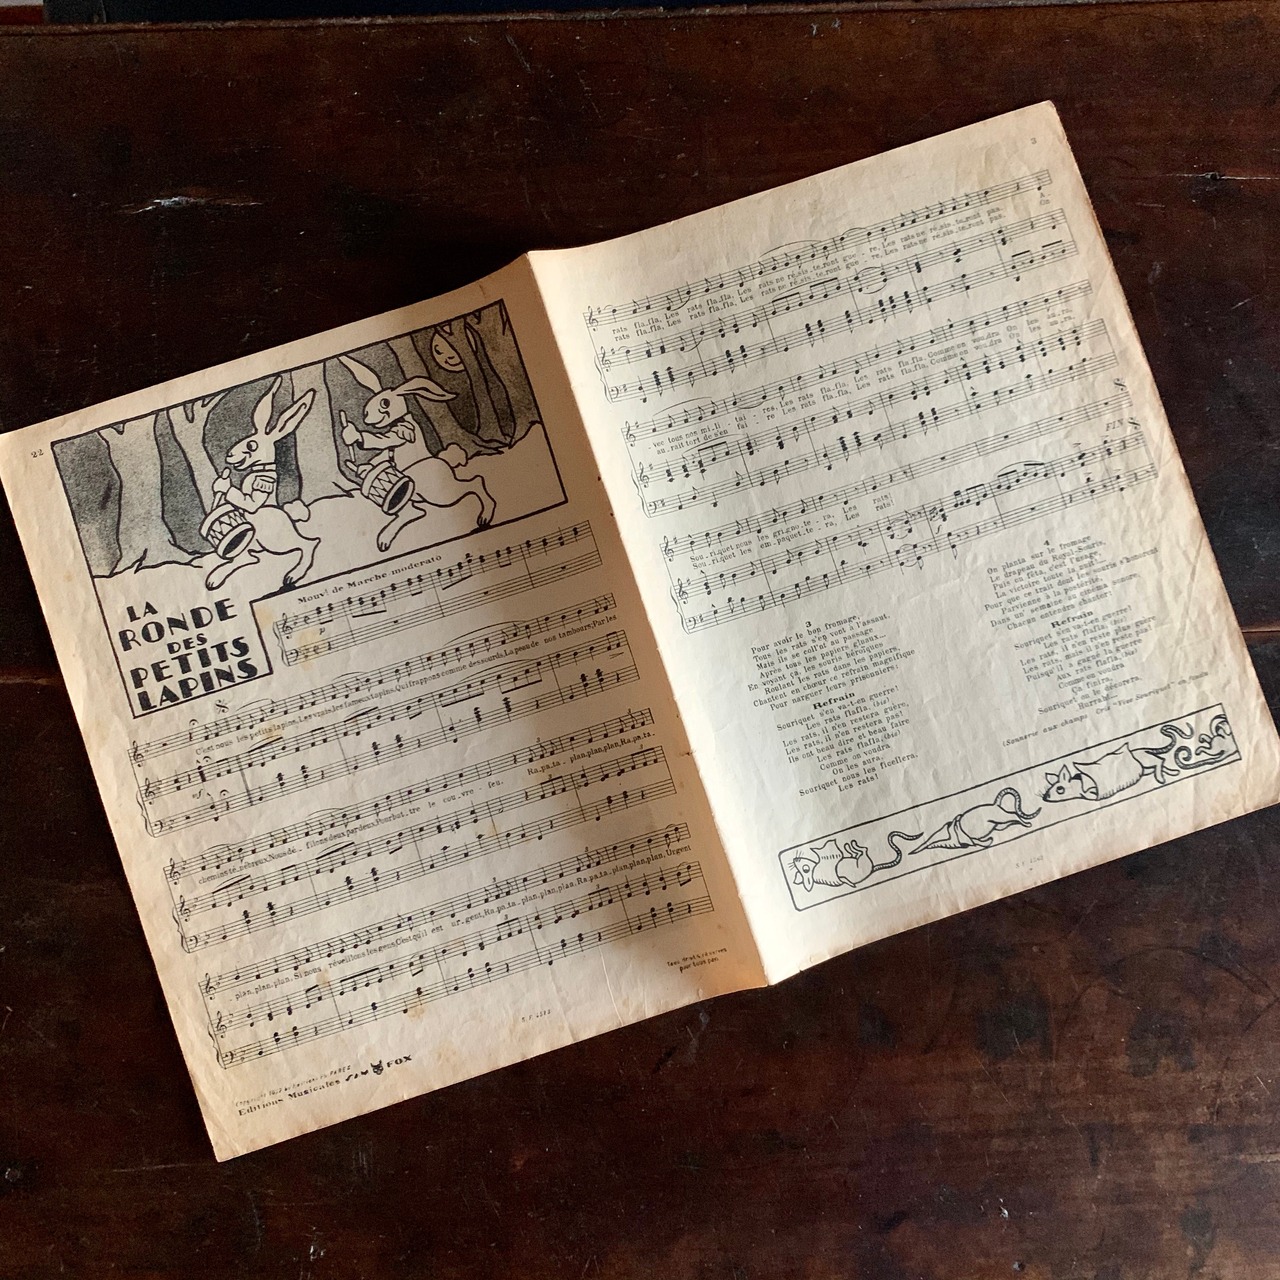 22
LA
RONDE
DES
PETITS
LAPINS
Mouvt de Marche moderato
p
C'est nous les petits lapins, Les vrais, les fameux lapins, Qui frappons comme des sourds, La peau de nos tambours, Par les
mf
chemins té_nébreux, Nous dé_filons deux par deux, Pour bat_tre le cou_vre_feu. Ra_pa_ta_plan, plan, plan, Ra_pa_ta_
3
_plan, plan, plan. Si nous réveillons les gens, C'est qu'il est ur_gent, Ra_pa_ta_plan, plan, plan, Ra_pa_ta_plan, plan, plan, Urgent
3
Tous droits réservés
pour tous pays
Editions Musicales SAM FOX
3
rats fla_fla, Les rats fla_fla, Les rats ne ré_sis_te_ront guè_re, Les rats ne ré_sis_te_ront pas. A_
rats fla_fla, Les rats fla_fla, Les rats ne ré_sis_te_ront guè_re, Les rats ne ré_sis_te_ront pas. On
_vec tous nos mi_li_tai_res, Les rats fla_fla, Les rats fla_fla, Comme on vou_dra On les au_ra,
au_rait tort de s'en fai_re Les rats fla_fla, Les rats fla_fla, Comme on vou_dra On les au_ra,
FIN
Sou_ri_quet nous les gri_gno_te_ra, Les rats!
Sou_ri_quet les em_paquet_te_ra, Les rats!
3
Pour avoir le bon fromage,
Tous les rats s'en vont à l'assaut,
Mais ils se coll'nt au passage
Après tous les papiers gluaux...
En voyant ça, les souris héroïques
Roulant les rats dans les papiers,
Chantent en chœur ce refrain magnifique
Pour narguer leurs prisonniers:
Refrain
Souriquet s'en va-t-en guerre!
Les rats flafla, (bis)
Les rats, il n'en restera guère,
Les rats, il n'en restera pas!
Ils ont beau dire et beau faire
Les rats flafla, (bis)
Comme on voudra
On les aura,
Souriquet nous les ficellera,
Les rats!
4
On planta sur le fromage
Le drapeau du Royal-Souris,
Puis on fêta, c'est l'usage,
La victoire toute la nuit...
Pour que ce trait dont les souris s'honorent
Parvienne à la postérité,
Dans un' semaine au cinéma sonore
Chacun entendra chanter:
Refrain
Souriquet s'en va-t-en guerre!
Les rats flafla, (bis)
Les rats, il n'en reste plus guère
Les rats, mais il n'en reste pas!
Puisqu'il a gagné la guerre
Aux rats flafla, (bis)
Comme on voudra
Ça finira,
Souriquet on le décorera,
Hurrah!
(Sonnerie aux champs Cris "Vive Souriquet" en foule